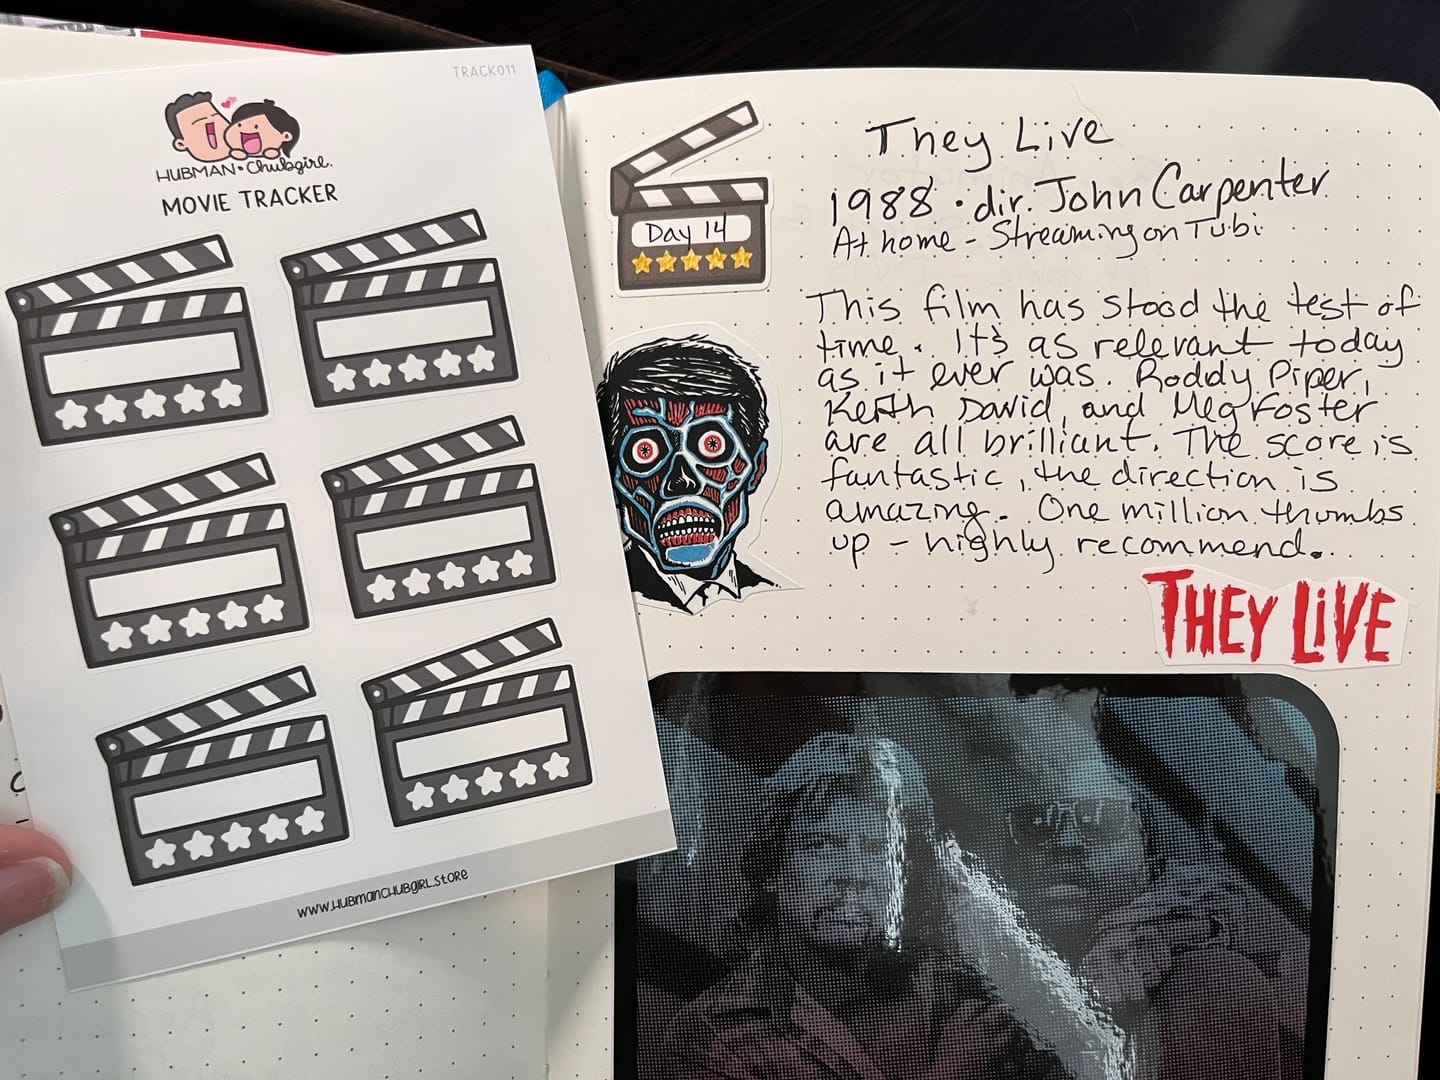 TRACK011
HUBMAN • Chubgirl.
MOVIE TRACKER
WWW.HUBMANCHUBGIRL.STORE
Day 14
They Live
1988 • dir. John Carpenter
At home - Streaming on Tubi
This film has stood the test of
time. It's as relevant today
as it ever was. Roddy Piper,
Keith David, and Meg Foster
are all brilliant. The score is
fantastic, the direction is
amazing. One million thumbs
up - highly recommend.
THEY LiVE